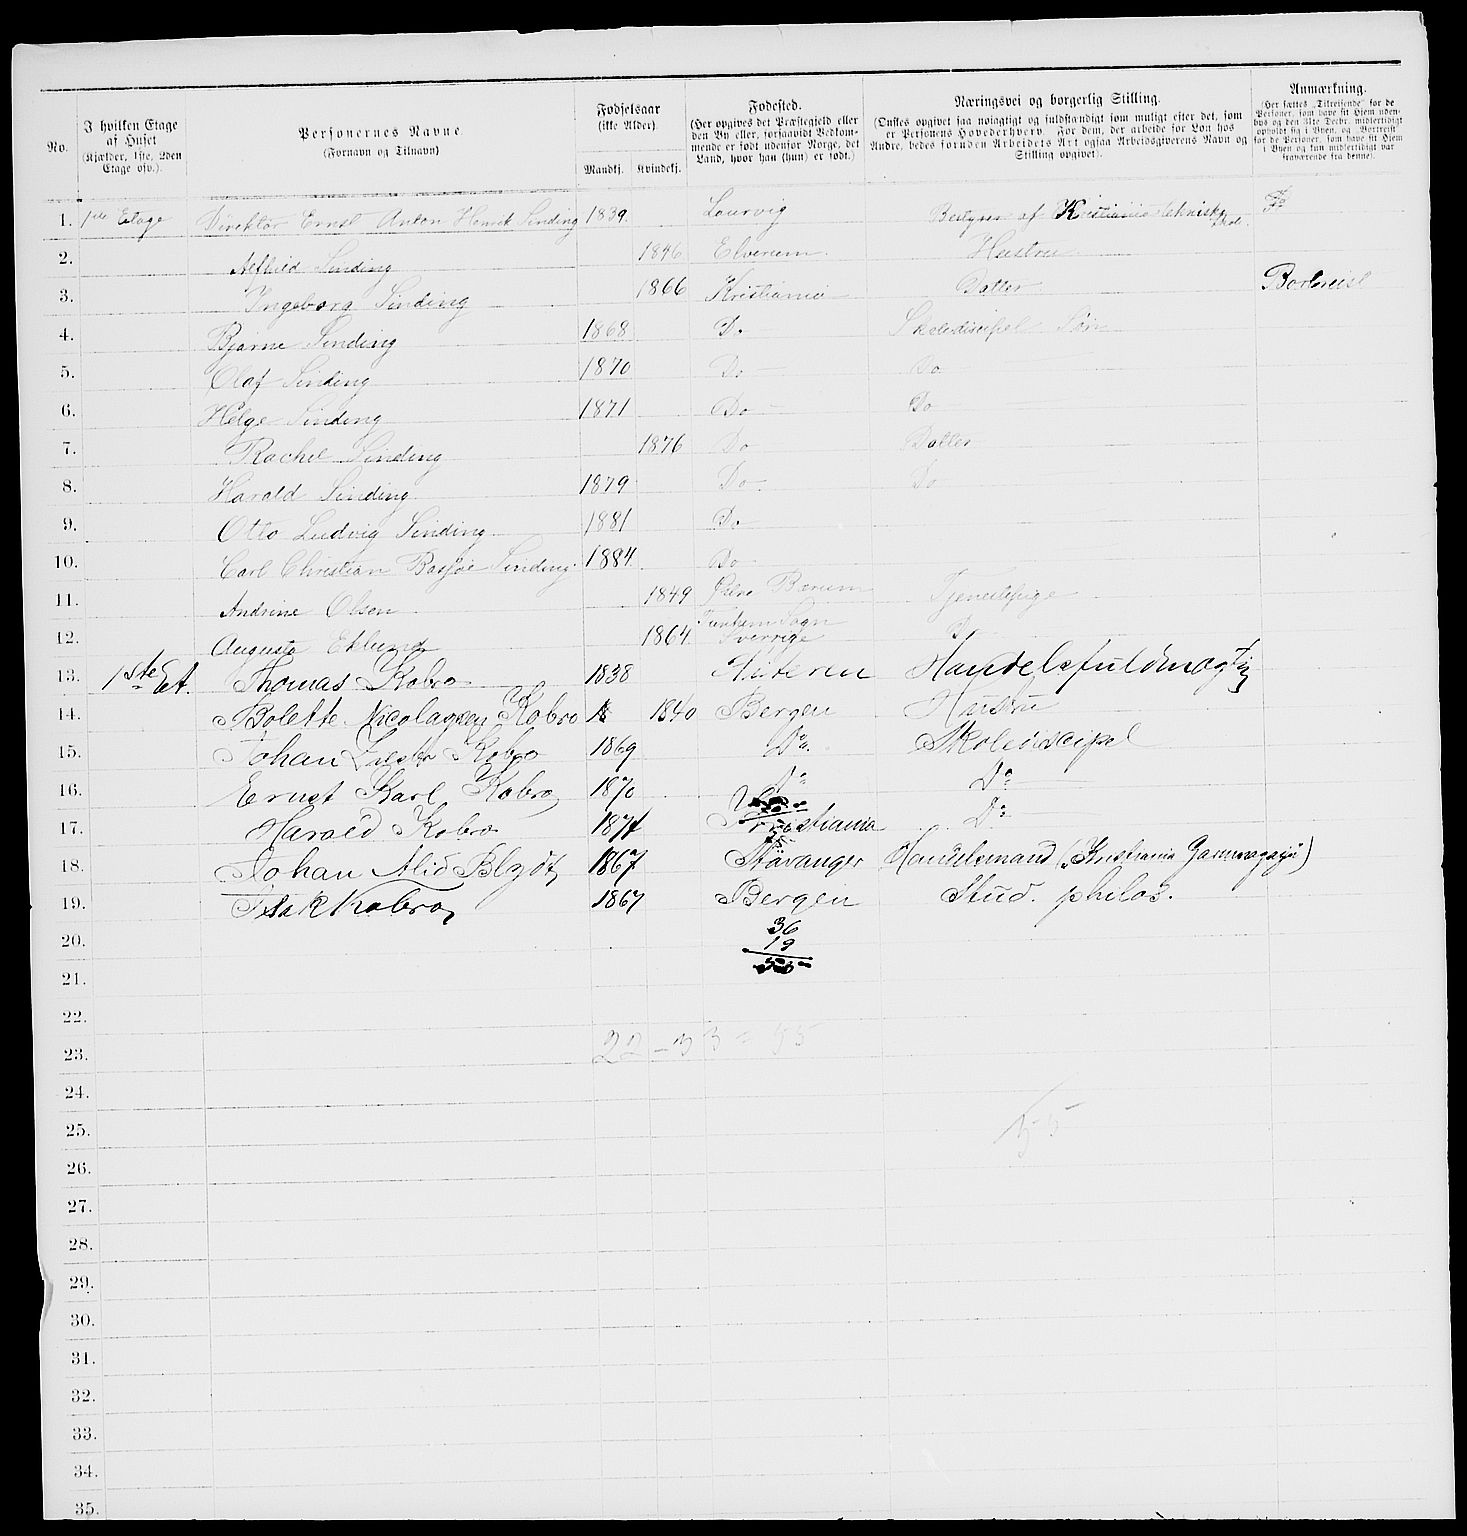 No.
I hvilken Etage af Huset (Kjælder, 1ste, 2den Etage osv.).
Personernes Navne (Fornavn og Tilnavn)
Fødselsaar (ikke Alder).
Mandkj. Kvindekj.
Fødested. (Her opgives det Præstegjeld eller den By eller, forsaavidt Vedkommende er født udenfor Norge, det Land, hvor han (hun) er født.)
Næringsvei og borgerlig Stilling. (Ønskes opgivet saa nøiagtigt og fuldstændigt som muligt efter det, som er Personens Hovederhverv. For dem, der arbeide for Løn hos Andre, bedes foruden Arbeidets Art ogsaa Arbeidsgiverens Navn og Stilling opgivet).
Anmærkning. (Her sættes „Tilreisende" for de Personer, som have sit Hjem udenbys og den 31te Decbr. midlertidigt opholdt sig i Byen, og „Bortreist" for de Personer, som have sit Hjem i Byen og kun midlertidigt var fraværende fra denne).
1. 1ste Etage Direktør Ernst Anton Henrik Sinding 1839. Laurvig Bestyrer af Kristiania tekniske Skole.
2. Sinding 1846 Elverum Hustru
3. Ingeborg Sinding 1866 Kristiania Datter Bortreist
4. Bjarne Sinding 1868 Do Skolediscipel Søn
5. Olaf Sinding 1870 Do Do
6. Helge Sinding 1871 Do Do
7. Rachel Sinding 1876 Do Datter
8. Harald Sinding 1879 Do Do
9. Otto Ludvig Sinding 1881 Do
10. Carl Christian Bassøe Sinding 1884 Do
11. Andrine Olsen 1849 Bærum Tjenestepige
12. Augusta Eklund 1864 Sogn Sverrige Do
13. 1ste Et. Thomas Kobro 1838 Hitteren Handelsfuldmægtig
14. Bolette Nicolaysen Kobro 18 1840 Bergen Hustru
15. Johan Kobro 1869 Do Skolediscipel
16. Ernst Karl Kobro 1870 Do Do
17. Harald Kobro 1874 Kristiania Do
18. Johan Alid Blydt 1867 Stavanger Handelsmand (Kristiania Garnmagazin)
19. Isak Kobro 1867 Bergen Stud. philos.
20. 36
19
21. 55
22.
23. 22 - 33 = 55
24.
25. 55
26.
27.
28.
29.
30.
31.
32.
33.
34.
35.